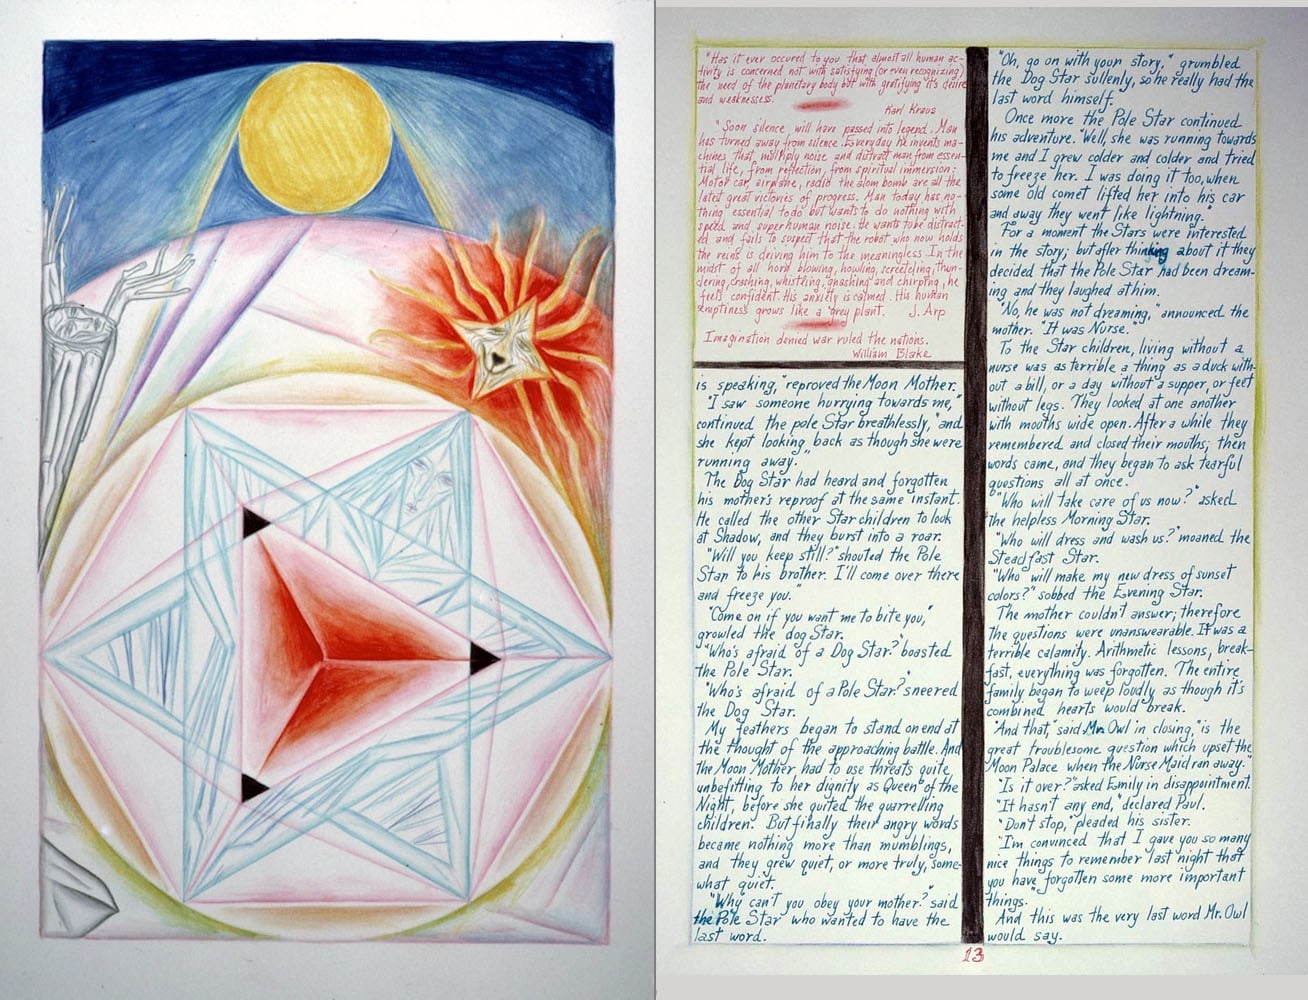 "Has it ever occured to you that almost all human ac-
tivity is concerned not with satisfying (or even recognizing)
the need of the planetary body but with gratifying it's desire
and weaknesses.
Karl Kraus
"Soon silence will have passed into legend. Man
has turned away from silence. Everyday he invents ma-
chines that multiply noise and distract man from essen-
tial life, from reflection, from spiritual immersion;
Motor car, airplane, radio the atom bomb are all the
latest great victories of progress. Man today has no-
thing essential to do but wants to do nothing with
speed and superhuman noise. He wants to be distract-
ed and fails to suspect that the robot who now holds
the reins is driving him to the meaningless. In the
midst of all horn blowing, howling, screeching, thun-
dering, crashing, whistling, gnashing and chirping, he
feels confident. His anxiety is calmed. His human
emptiness grows like a grey plant. J. Arp
Imagination denied war ruled the nations.
William Blake
is speaking," reproved the Moon Mother.
"I saw someone hurrying towards me,"
continued the pole Star breathlessly, "and
she kept looking back as though she were
running away."
The Dog Star had heard and forgotten
his mother's reproof at the same instant.
He called the other Star children to look
at Shadow, and they burst into a roar.
"Will you keep still?" shouted the Pole
Star to his brother. I'll come over there
and freeze you."
"Come on if you want me to bite you,"
growled the dog Star.
"Who's afraid of a Dog Star?" boasted
the Pole Star.
"Who's afraid of a Pole Star?" sneered
the Dog Star.
My feathers began to stand on end at
the thought of the approaching battle. And
the Moon Mother had to use threats quite
unbefitting to her dignity as Queen of the
Night, before she quited the quarrelling
children. But finally their angry words
became nothing more than mumblings,
and they grew quiet, or more truly, some-
what quiet.
"Why can't you obey your mother?" said
the Pole Star who wanted to have the
last word.
"Oh, go on with your story," grumbled
the Dog Star sullenly, so he really had the
last word himself.
Once more the Pole Star continued
his adventure. "Well, she was running towards
me and I grew colder and colder and tried
to freeze her. I was doing it too, when
some old comet lifted her into his car
and away they went like lightning."
For a moment the Stars were interested
in the story; but after thinking about it they
decided that the Pole Star had been dream-
ing and they laughed at him.
"No, he was not dreaming," announced the
mother. "It was Nurse."
To the Star children, living without a
nurse was as terrible a thing as a duck with-
out a bill, or a day without a supper, or feet
without legs. They looked at one another
with mouths wide open. After a while they
remembered and closed their mouths; then
words came, and they began to ask tearful
questions all at once.
"Who will take care of us now?" asked
the helpless Morning Star.
"Who will dress and wash us?" moaned the
Steadfast Star.
"Who will make my new dress of sunset
colors?" sobbed the Evening Star.
The mother couldn't answer; therefore
the questions were unanswerable. It was a
terrible calamity. Arithmetic lessons, break-
fast, everything was forgotten. The entire
family began to weep loudly as though it's
combined hearts would break.
"And that," said Mr. Owl in closing, "is the
great troublesome question which upset the
Moon Palace when the Nurse Maid ran away."
"Is it over?" asked Emily in disappointment.
"It hasn't any end," declared Paul.
"Don't stop," pleaded his sister.
"I'm convinced that I gave you so many
nice things to remember last night that
you have forgotten some more important
things."
And this was the very last word Mr. Owl
would say.
13